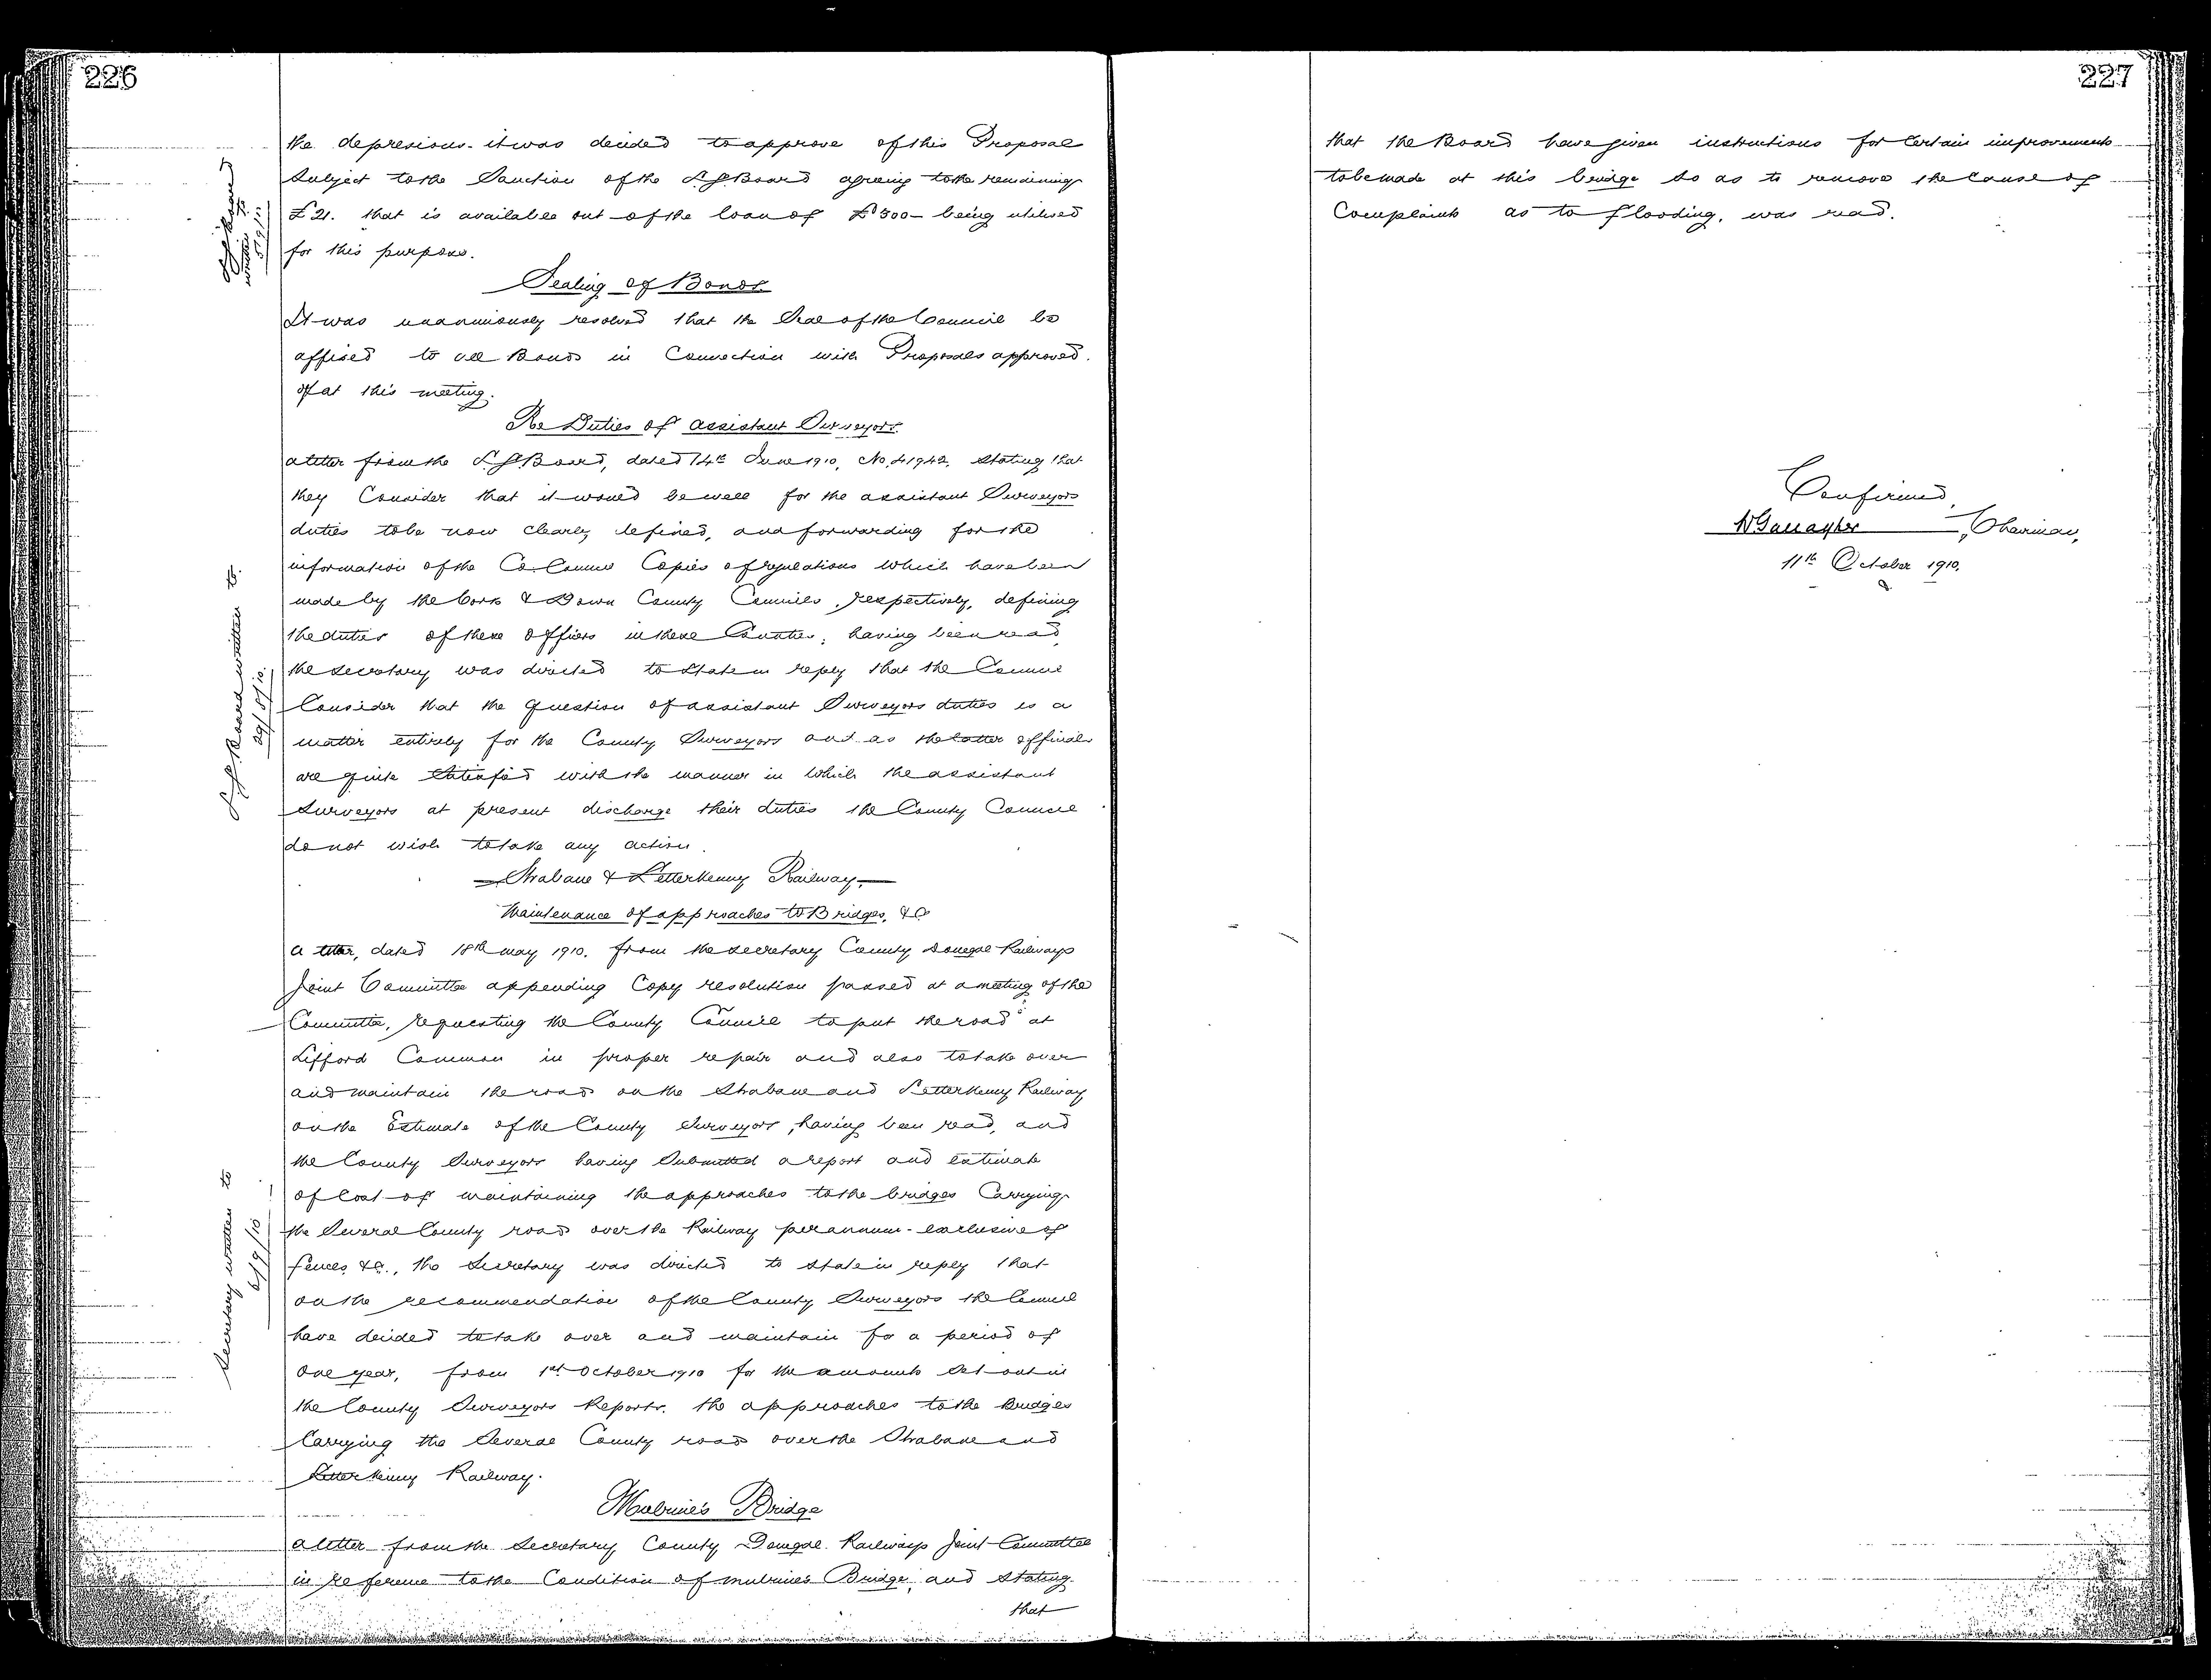 226
the depresions - it was decided to approve of this Proposal
Subject to the Sanction of the L.G. Board agreeing to the remaining
£21. that is available out of the loan of £500 - being utilised
for this purpose.
L.G. Board
written to
5/9/10
Sealing of Bonds
It was unanimously resolved that the Seal of the Council be
affixed to all Bonds in Connection with Proposals approved
of at this meeting.
Re Duties of assistant Surveyors.
a letter from the L.G. Board, dated 14th June 1910, No. 41942, stating that
they Consider that it would be well for the assistant Surveyors
duties to be now clearly defined, and forwarding for the
information of the Co. Council Copies of regulations which have been
made by the Cork & Down County Councils, respectively, defining
the duties of these officers in these Counties; having been read,
the secretary was directed to state in reply that the Council
Consider that the question of assistant Surveyors duties is a
matter entirely for the County Surveyors and as the latter officials
are quite satisfied with the manner in which the assistant
Surveyors at present discharge their duties the County Council
do not wish to take any action.
L.G. Board written to
29/8/10.
Strabane & Letterkenny Railway,
Maintenance of approaches to Bridges, &c
a letter, dated 18th may 1910. from the secretary County Donegal Railways
Joint Committee appending Copy resolution passed at a meeting of the
Committee, requesting the County Council to put the roads at
Lifford Common in proper repair and also to take over
and maintain the roads on the Strabane and Letterkenny Railway
on the Estimate of the County Surveyors, having been read, and
the County Surveyors having Submitted a report and estimate
of Cost of maintaining the approaches to the bridges Carrying
the Several County roads over the Railway per annum - exclusive of
fences &c., the Secretary was directed to state in reply that
on the recommendation of the County Surveyors the Council
have decided to take over and maintain for a period of
one year, from 1st October 1910 for the amounts Set out in
the County Surveyors Reports. the approaches to the Bridges
Carrying the Several County roads over the Strabane and
Letterkenny Railway.
Secretary written to
6/9/10
Mulrine's Bridge
a letter from the Secretary County Donegal Railways Joint Committee
in reference to the Condition of mulrine's Bridge, and stating
that
227
that the Board have given instructions for Certain improvements
to be made at this bridge so as to remove the Cause of
Complaints as to flooding, was read.
Confirmed,
W Gallagher, Chairman,
11th October 1910.